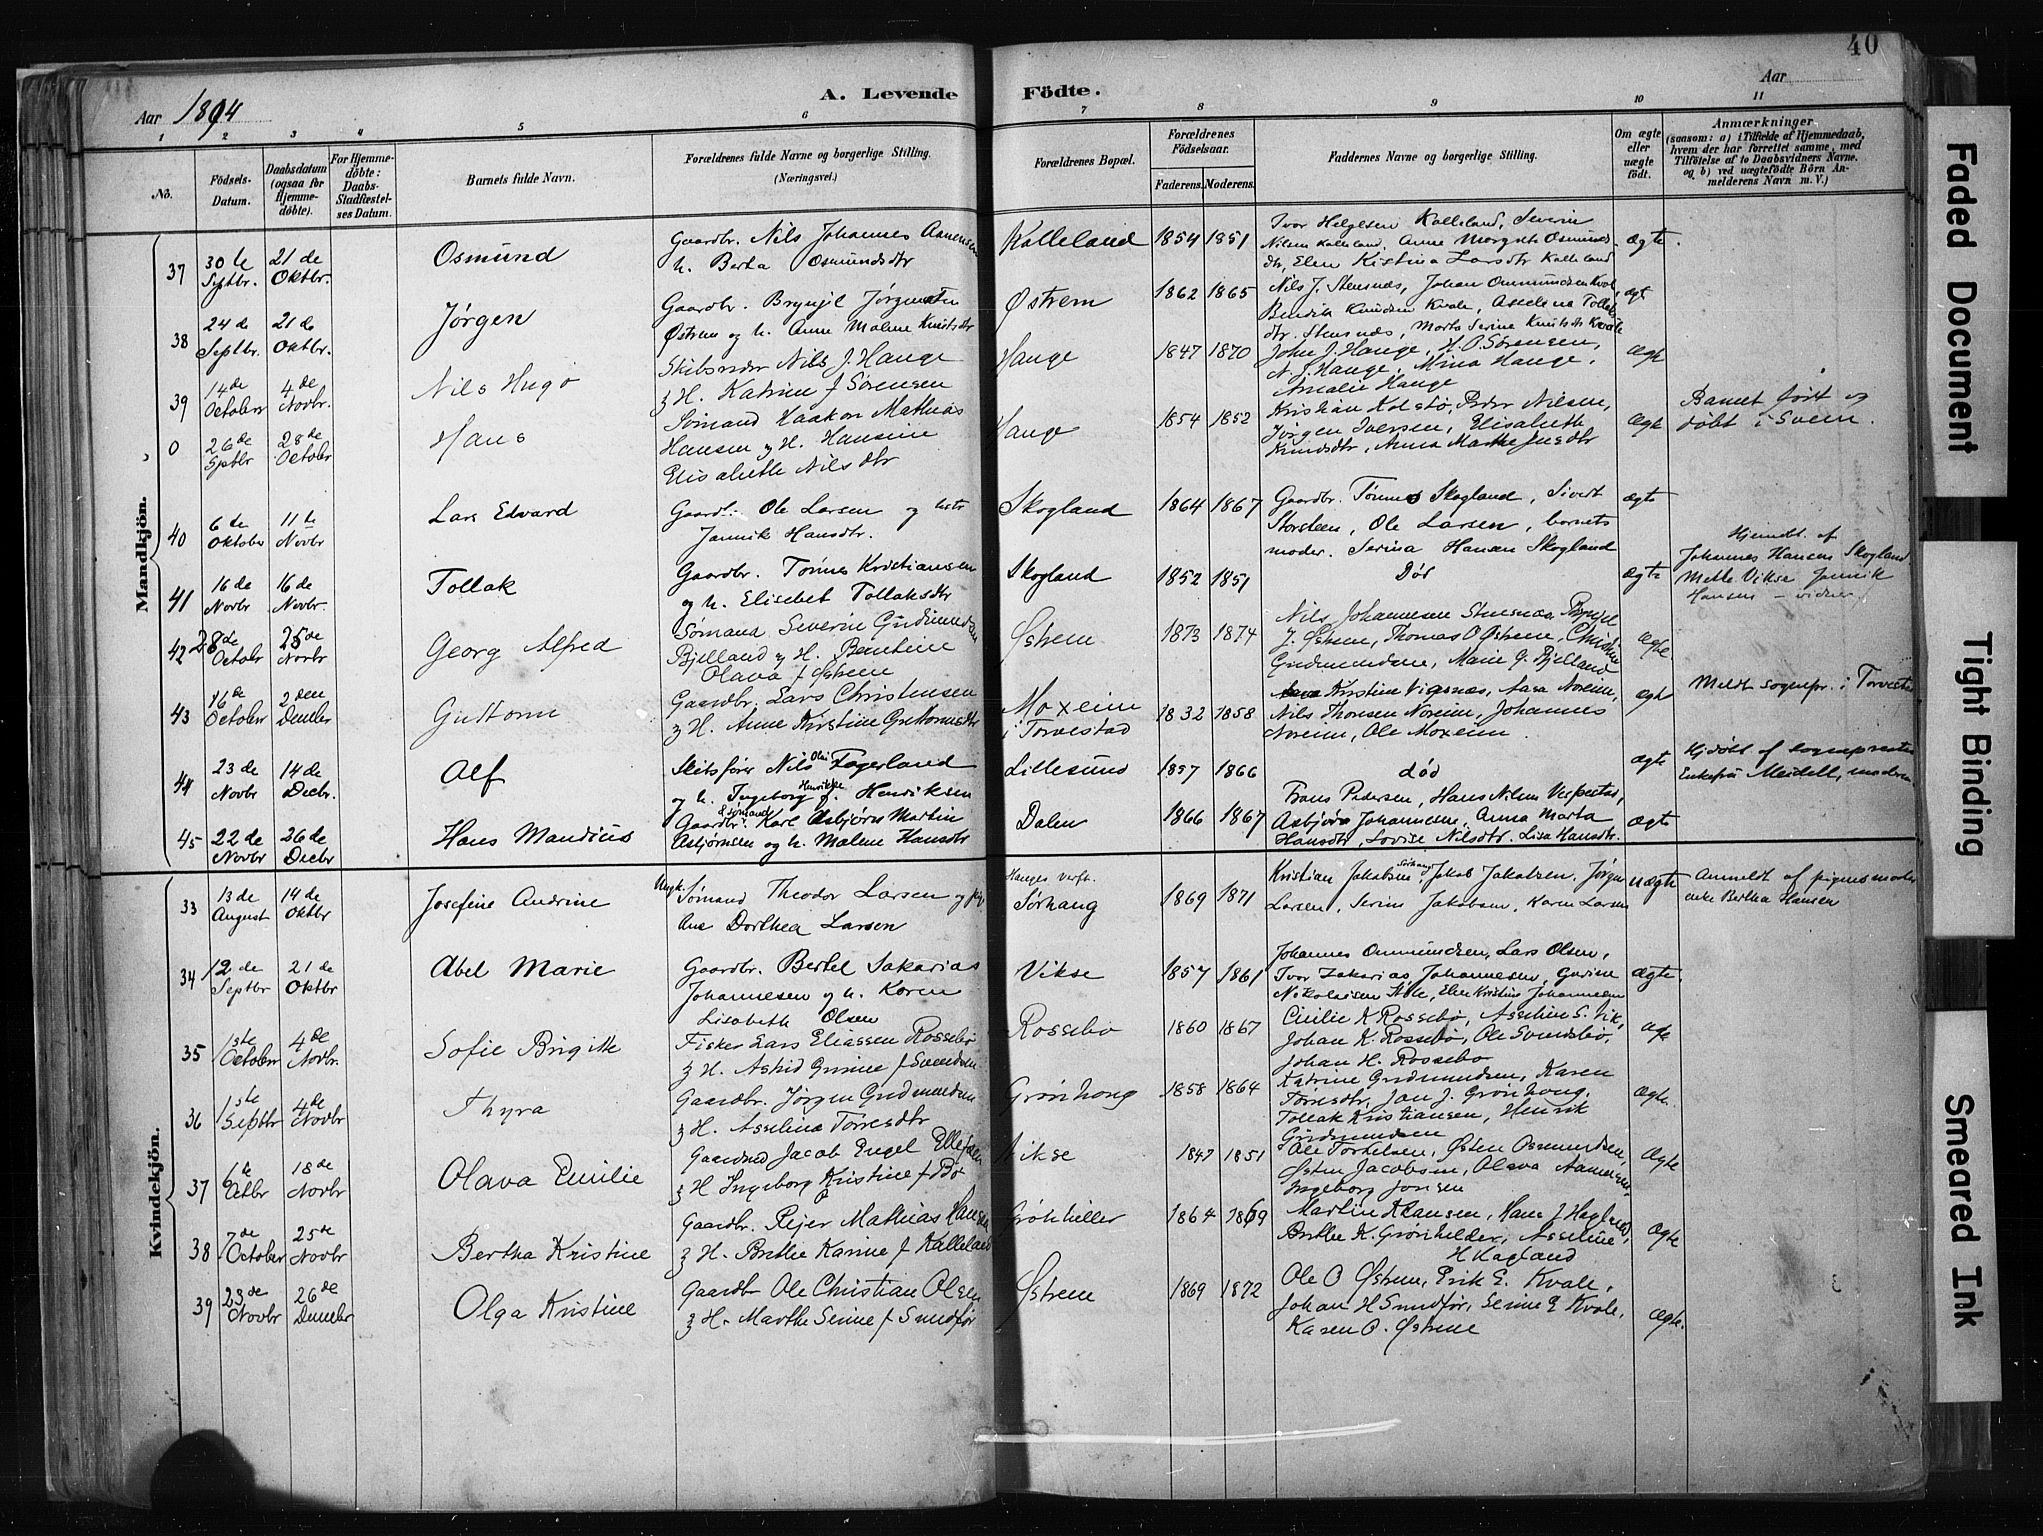 40
Aar 1894
A. Levende Födte.
Aar
1 2 3 4 5 6 7 8 9 10 11
No.
Födsels-Datum.
Daabsdatum (ogsaa for Hjemme-döbte).
For Hjemme-döbte: Daabs-Stadfæstel-ses Datum.
Barnets fulde Navn.
Forældrenes fulde Navne og borgerlige Stilling.
(Næringsvei.)
Forældrenes Bopæl.
Forældrenes Födselsaar.
Faderens. Moderens.
Faddernes Navne og borgerlige Stilling.
Om ægte eller uægte födt.
Anmærkninger
(saasom: a) i Tilfælde af Hjemmedaab,
hvem der har forrettet samme, med
Tilföielse af to Daabsvidners Navne.
og b) ved uægtefödte Börn An-
melderens Navn m. V.)
Mandkjön.
37 30te Septbr. 21de Oktbr. Osmund
Gaardbr. Nils Johannes Aanensen
h. Berta Osmundsdtr
Kalleland 1854 1851
Ivar Helgesen Kalleland, Severin
Nilsen Kalleland, Anne Margrete Osmunds-
dtr, Elen Kistina Larsdtr Kalleland
Ægte.
38 24de Septbr. 21de Oktbr. Jørgen
Gaardbr. Brynjel Jørgensen
Østrem og h. Anne Malene Knutsdtr
Østrem 1862 1865
Nils J. Stensnæs, Johan Ommundsen Kvale,
Bendik Knudsen Kvale, Asselena Tollaks
dtr. Stensnæs, Marta Serine Knutsdtr Kvale
ægt
39 14de October 4de Novbr. Nils Hugo
Skibsreder Nils J. Hauge
& H. Katrine f Sørensen
Hauge 1847 1870
John J. Hauge, H. O. Sørensen,
N. J. Hauge, Mina Hauge,
Amalie Hauge
Ægte
0 26de Sptbr 28de October Hans
Sømand Haakon Mathias
Hansen & H. Hansine
Elisabeth Nilsdtr
Hauge 1854 1852
Kristian Kolstø, Peder Nilsen,
Jørgen Iversen, Elisabeth
Knudsdtr, Anna Marthe Jensdtr
Ægte
Barnet født og
døbt i Sveen.
40 6de Oktober 11te Novbr Lars Edvard
Gaardb: Ole Larsen og hstr
Jannik Hansdtr.
Skogland 1864 1867
Gaardbr. Tønnes Skogland, Sivert
Storsteen, Ole Larsen, barnets
moder. Serina Hansen Skogland
ægte
41 16de Novbr 16de Novbr. Tollak
Gaardbr. Tønnes Kristiansen
og h. Elisebet Tollaksdtr
Skogland 1852 1851
Død
Ægte
Hjemdt. af
Johannes Hansen Skogland
Mette Vikse Jannik
Hansen – vidner.
42 28de October 25de Novbr Georg Alfred
Sømand Severin Gudmundsen
Bjelland & H. Bentine
Olava f Østrem
Østrem 1873 1874
Nils Johannesen Stensnæs, Brynjel
J. Østrem, Thomas O Østrem, Christine
Gudmundsen, Marie G. Bjelland
Ægte.
43 16de October 2den Decmber Guttorm
Gaardbr. Lars Christensen
& H. Anne Kirstine Guttormsdtr
Moxeim
i Torvestad 1832 1858
Kristine Viksnæs, Aasa Noreim,
Nils Thoresen Noreim, Johannes
Noreim, Ole Moxeim.
Ægte
Meldt sognepr. i Torvestad
44 23de Novbr 14de Decbr. Alf
Skibsfører Nils Olai Fagerland
og h. Ingeborg Henrikke f. Henriksen
Lillesund 1857 1866
død
ægte
Hjdøbt af sognepresten
Enkefru Meidell, moderen
45 22de Novbr 26de Decbr Hans Mandius
Gaardbr. & sømand Karl Asbjørn Martin
Asbjørnsen og h. Malene Hansdtr
Dalen 1866 1867
Frans Pedersen, Hans Nilsen Vespestad,
Asbjørn Johannesen, Anna Marta
Hansdtr, Lovise Nilsdtr. Lisa Hansdtr.
Ægte
Kvindekjön.
33 13de August 14de Oktbr Josefine Andrine
Ungk. Sømand Theodor Larsen og pige
Ane Dorthea Larsen
Hauges verft.
Sørhaug 1869 1871
Kristian Jakobsen Sørhaug, Jakob Jakobsen, Jørgen
Larsen, Serine Jakobsen, Karen Larsen
Uægte
Anmeldt af pigens moder
enke Bertha Hansen
34 12de Septbr 21de Oktbr Abel Marie
Gaardbr. Bertel Sakarias
Johannesen og h. Karen
Lisabeth Olsen
Vikse 1857 1861
Johannes Ommundsen, Lars Olsen,
Ivar Zakarias Johannesen, Gurine
Nikolaisen Støle, Elen Kristine Johannesen
Ægte.
35 1ste October 4de Novbr. Sofie Brigitte
Fisker Lars Eliassen Rossebø
& H. Astrid Gurine f Svendsen
Rossebø 1860 1867
Cicilie K Rossebø, Asseline S. Vik,
Johan K. Rossebø, Ole Svendsbø,
Johan H. Rossebø
ægte
36 1ste Septbr 4de Novbr Thyra
Gaardbr. Jørgen Gudmundsen
& H. Asseline Torresdtr
Grønhoug 1858 1864
Katrine Gudmundsen, Karen
Torresdtr, Jan J. Grønhoug.
Tollak Kristiansen, Henrik
Gudmundsen
Ægte.
37 6te Octbr 18de Novbr Olava Emilie
Gaardmd Jacob Engel Ellefsen
& H Ingeborg Kristine f Bø
Vikse 1847 1851
Ole Torkelsen, Østen Osmundsen,
Østen Jacobsen, Olava Aamensen,
Ingeborg Jonsen
Ægte
38 7de October 25de Novbr Bertha Kristine
Gaardbr. Rejer Mathias Hansen
& H. Brithe Karine f Kalleland
Grønheller 1864 1869
Martin K Hansen, Hans J Hagland,
Brithe K. Grønhelder, Asseline
H Hagland
Ægte
39 23de Novbr 26de Decmber Olga Kristine
Gaardbr Ole Christian Olsen
& H. Marthe Serine f Sundfør
Østrem 1869 1872
Ole O Østrem, Erik E. Kvale,
Johan H Sundfør, Serine E Kvale,
Karen O. Østrem
Ægte.
Faded Document
Tight Binding
Smeared Ink